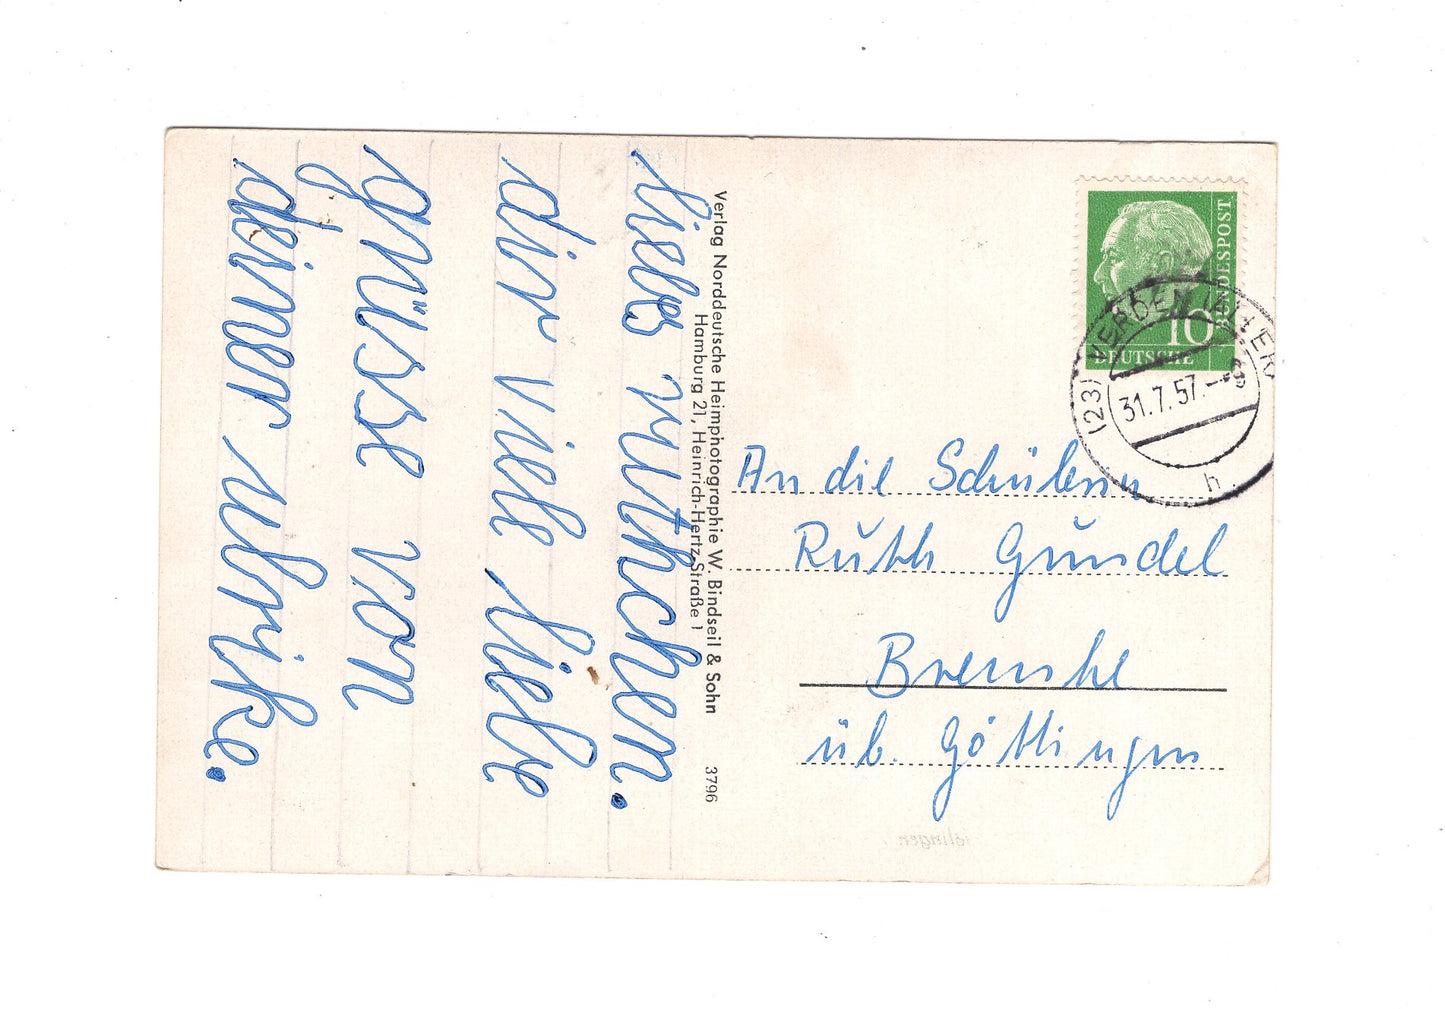 liebes ruthchen.
dir viele liebe
grüsse von
deiner ulrike.
Verlag Norddeutsche Heimphotographie W. Bindseil & Sohn
Hamburg 21, Heinrich-Hertz-Straße 1
3796
DEUTSCHE BUNDESPOST
10
(23) VERDEN (ALLER)
31.7.57.
h
An die Schülerin
Ruth Gundel
Bremke
üb. Göttingen